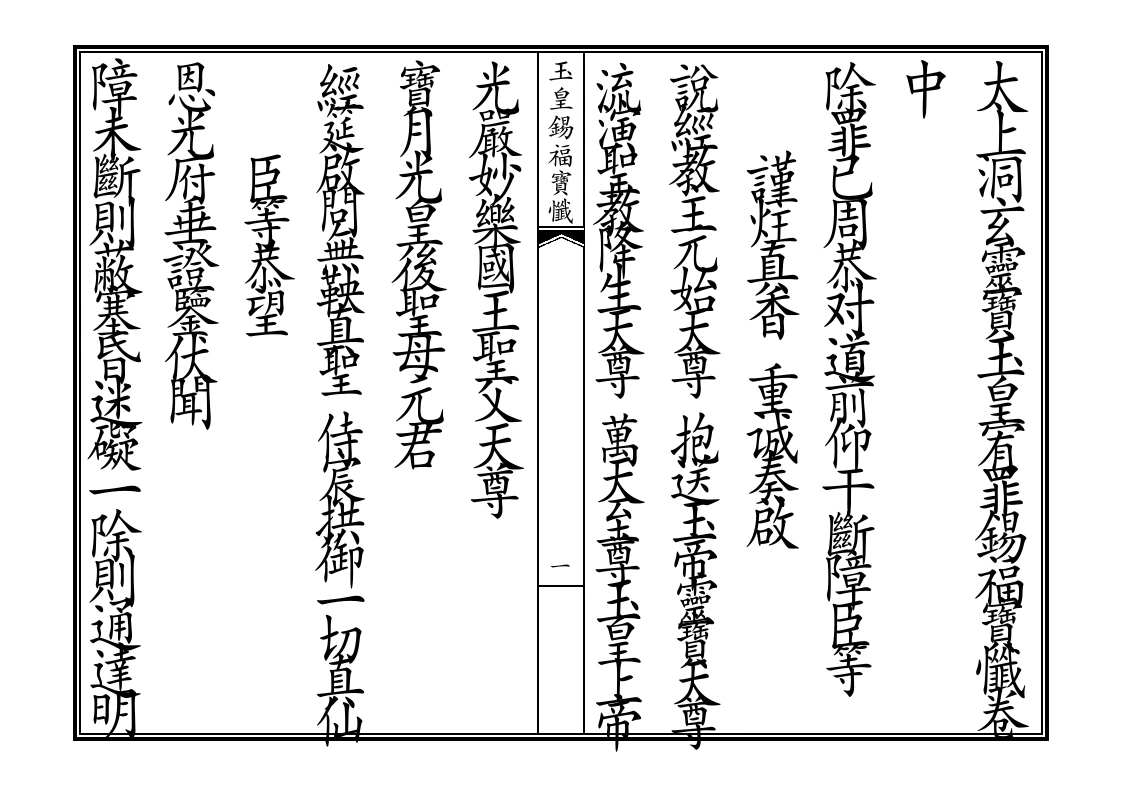 太上洞玄靈寶玉皇宥罪錫福寶懺卷
中
除罪已周恭对道前仰干斷障臣等
謹炷真香 重诚奏啟
說經教主元始天尊 抱送玉帝靈寶天尊
流演聖教降生天尊 萬天至尊玉皇上帝
玉皇錫福寶懺
一
光嚴妙樂國王聖父天尊
寶月光皇後聖母元君
經筵啟問無鞅真聖 侍宸拱御一切真仙
臣等恭望
恩光府垂證鑒伏聞
障未斷則蔽塞昏迷礙一除則通達明